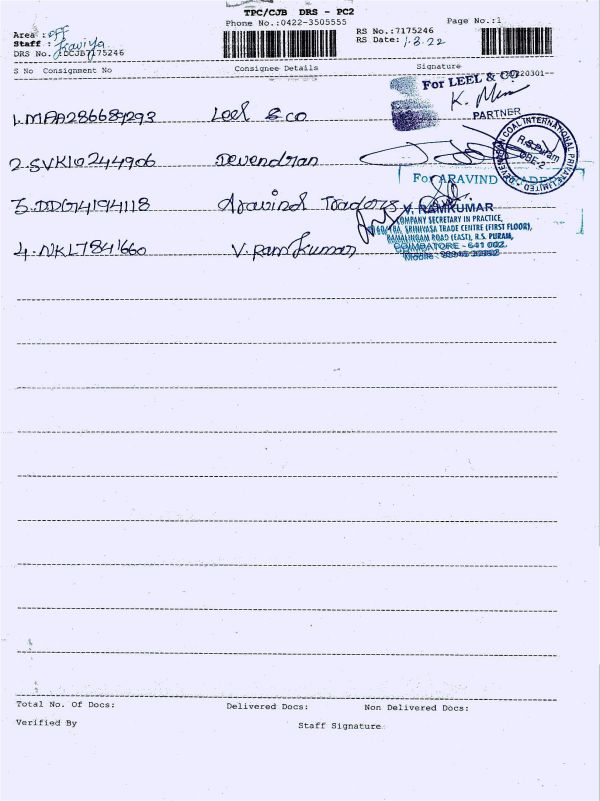 TPC/CJB DRS - PC2
Phone No.:0422-3505555
Page No.:1
Area : off
RS No.:7175246
Staff : Kaviya
RS Date: 1.8.22
DRS No. :DCJB7175246
S No Consignment No Consignee Details Signature
1.MAA286689293 Leel & co
For LEEL & CO
PARTNER
2.SVK10244906 Devendran
COAL INTERNATIONAL PRIVATE LIMITED
R.S.Puram
CBE-2
3.DDG74194118 Aravind Traders
For ARAVIND
4.NKL7841660 V.Ram Kumar
V. RAMKUMAR
COMPANY SECRETARY IN PRACTICE,
SRINIVASA TRADE CENTRE (FIRST FLOOR),
RAMALINGAM ROAD (EAST), R.S. PURAM,
COIMBATORE - 641 002.
Mobile :
Total No. Of Docs: Delivered Docs: Non Delivered Docs:
Verified By Staff Signature